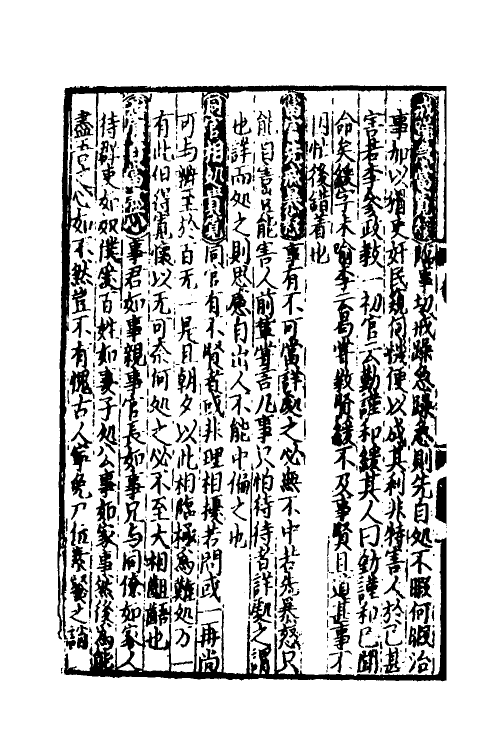 戒躁急當寬緩臨事切戒躁急躁急則先自処不暇何暇治
事加以猾吏奸民窺伺機便以成其利非特害人於己甚
害若李參政教一初官云勤謹和緩其人曰勤謹和已聞
命矣緩字未喻李云曷嘗教賢緩不及事賢且道甚事不
因忙後錯着也
當官先戒暴怒事有不可當詳處之必無不中若先暴怒只
能自害豈能害人前輩嘗言凡事只怕待待者詳處之謂
也詳而処之則思慮自出人不能中傷之也
同官相処貴寬同官有不賢者或非理相擾若間或一再尚
可与辨至於百无一是且朝夕以此相臨極為難処万一
有此但得寬懷以无可奈何処之必不至大相齟齬也
官當盡心事君如事親事官長如事兄与同僚如家人
待群吏如奴僕愛百姓如妻子処公事如家事然後為能
盡吾之心如不然豈不有愧古人寧免尸位素餐之誚